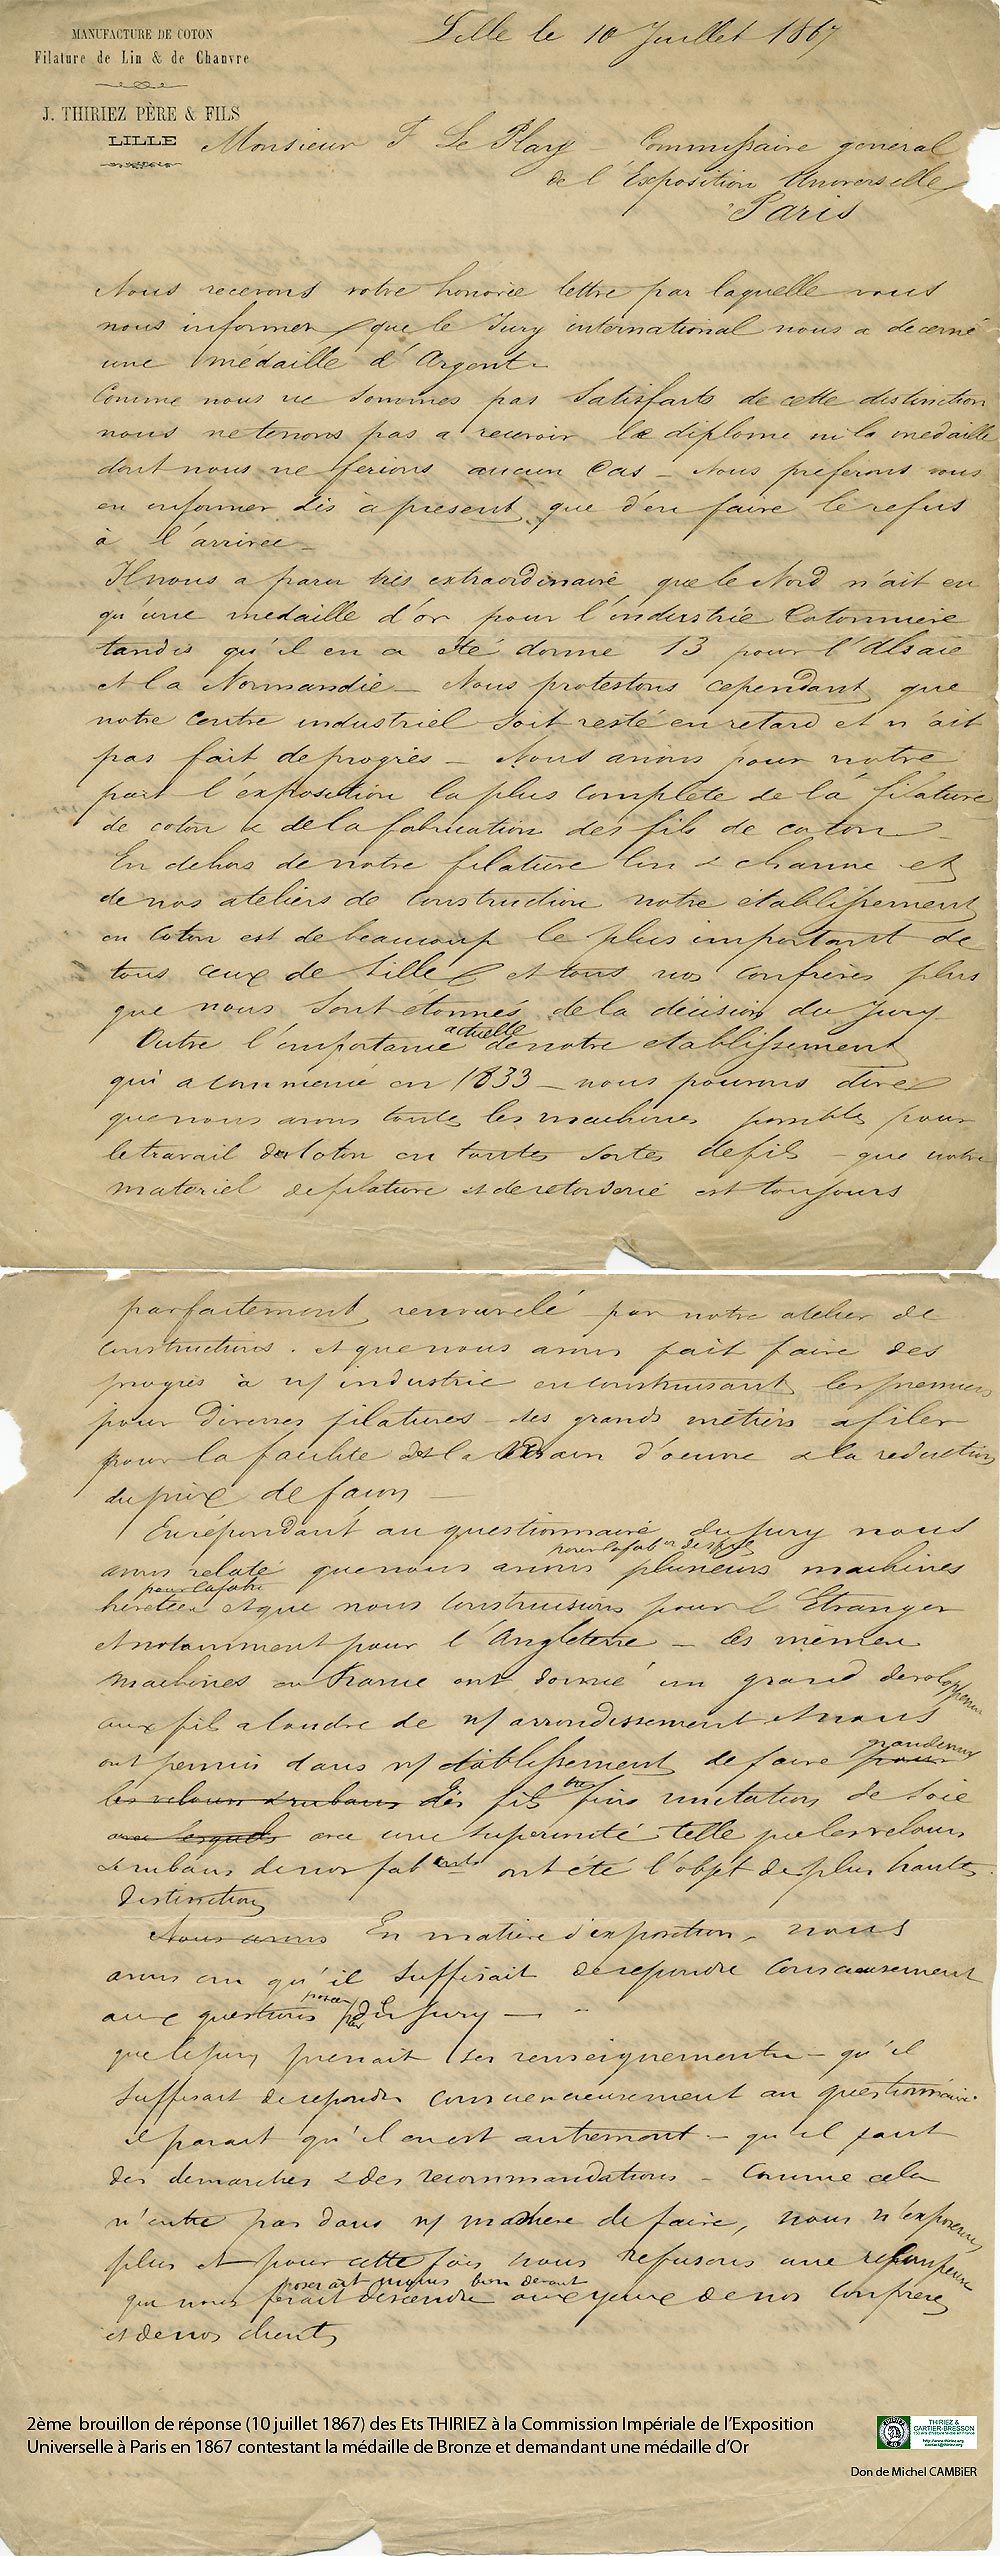 MANUFACTURE DE COTON
Filature de Lin & de Chanvre
J. THIRIEZ PÈRE & FILS
LILLE
Lille le 10 Juillet 1867
Monsieur F Le Play - Commissaire général
de l'Exposition Universelle
Paris
Nous recevons votre honorée lettre par laquelle vous
nous informez que le Jury international nous a decerné
une médaille d'Argent
Comme nous ne sommes pas satisfaits de cette distinction
nous ne tenons pas a recevoir le diplome ni la medaille
dont nous ne ferions aucun cas - Nous préferons vous
en informer dès à présent que d'en faire le refus
à l'arrivée -
Il nous a paru très extraordinaire que le Nord n'ait eu
qu'une medaille d'or pour l'industrie Cotonnière
tandis qu'il en a été donné 13 pour l'Alsace
et la Normandie - Nous protestons cependant que
notre centre industriel soit resté en retard et n'ait
pas fait de progrès - Nous avions pour notre
part l'exposition la plus complète de la filature
de coton & de la fabrication des fils de coton -
En dehors de notre filature lin & chanvre et
de nos ateliers de construction notre établissement
en coton est de beaucoup le plus important de
tous ceux de Lille et tous nos confrères plus
que nous sont étonnés de la décision du Jury
Outre l'importance actuelle de notre etablissement
qui a commencé en 1833 - nous pouvons dire
que nous avons toutes les machines possibles pour
le travail du Coton en toutes sortes de fils - que notre
matériel de filature et de retorderie est toujours
parfaitement renouvelé par notre atelier de
constructions . et que nous avons fait faire des
progrès à n/ industrie en construisant les premiers
pour diverses filatures - des grands métiers a filer
pour la facilité de la Main d'oeuvre & la reduction
du prix de façon -
En répondant au questionnaire du Jury nous
avons relaté que nous avions plusieurs machines
et que nous construisions pour l'Etranger
et notamment pour l'Angleterre - Ces mêmes
machines en France ont donné un grand developpement
aux fils a coudre de n/ arrondissement et nous
ont permis dans n/ établissement de faire pour
les velours & rubans des fils très fins imitation de soie
avec lesquels avec une superiorité telle que les velours
& rubans de nos fabcants ont été l'objet de plus hautes
distinctions
Nous avons En matière d'exposition, nous
avons cru qu'il suffisait de repondre consciencieusement
aux questions posées par le Jury -
que le jury prenait ses renseignements - qu'il
suffisait de repondre consciencieusement au questionnaire
il parait qu'il en est autrement - qu'il faut
des demarches & des recommandations - Comme cela
n'entre pas dans n/ manière de faire, nous n'exposerons
plus et pour cette fois nous refusons une recompense
qui nous poserait moins bien devant
ferait descendre aux yeux de nos Confrères
et de nos clients
2ème brouillon de réponse (10 juillet 1867) des Ets THIRIEZ à la Commission Impériale de l'Exposition
Universelle à Paris en 1867 contestant la médaille de Bronze et demandant une médaille d'Or
THIRIEZ &
CARTIER-BRESSON
Don de Michel CAMBIER